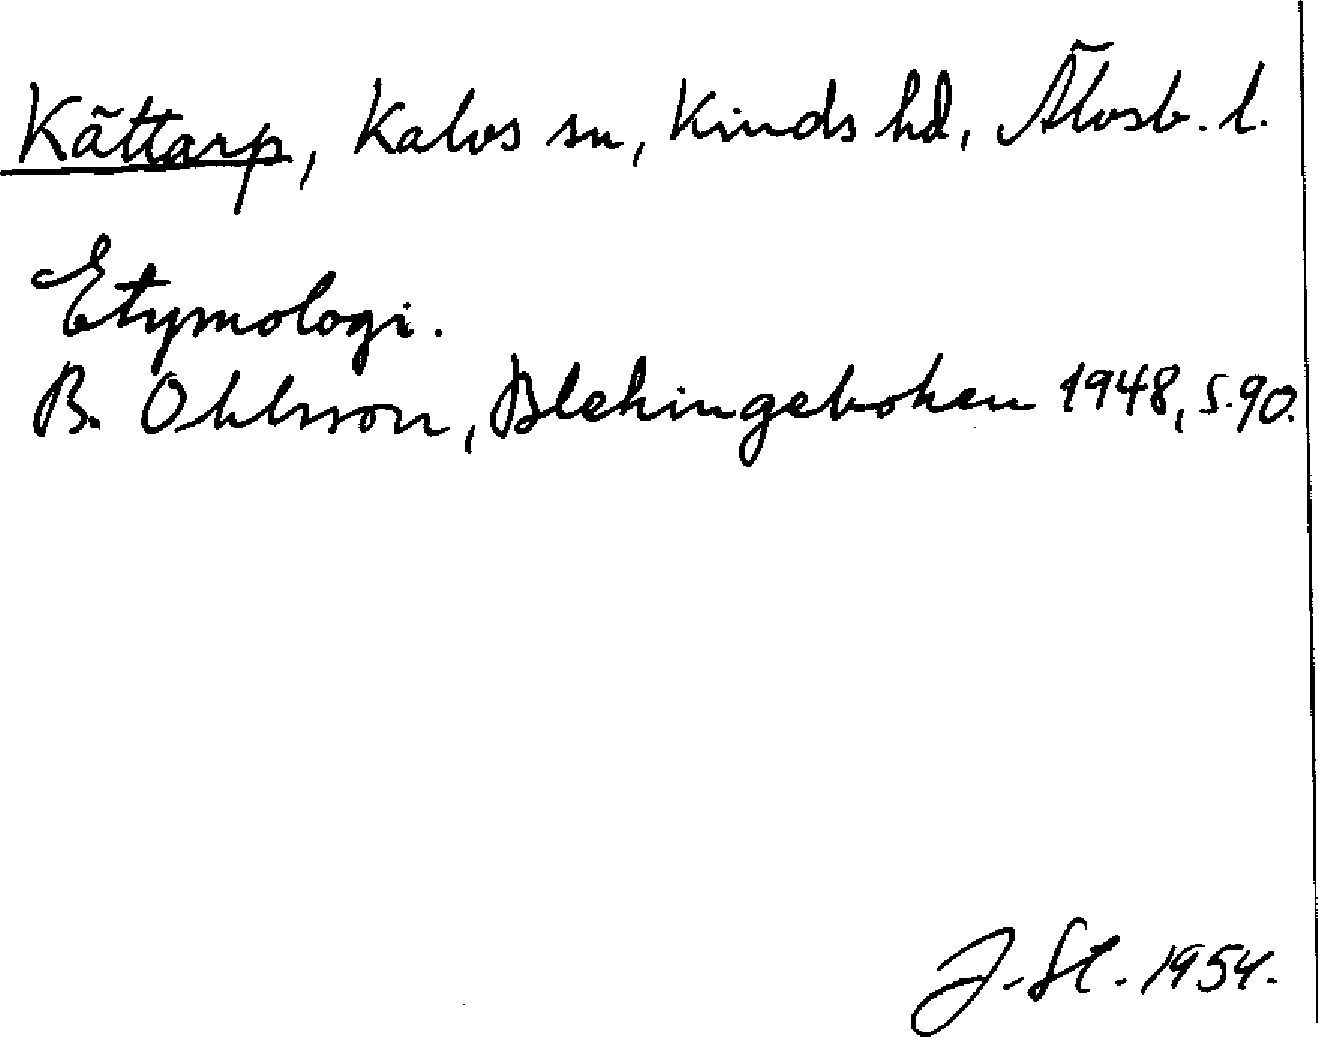 Kättarp, Kalvs sn, Kinds hd, Älvsb. l.
Etymologi.
B. Ohlsson, Blekingeboken 1948, s. 90.
J. St. 1954.